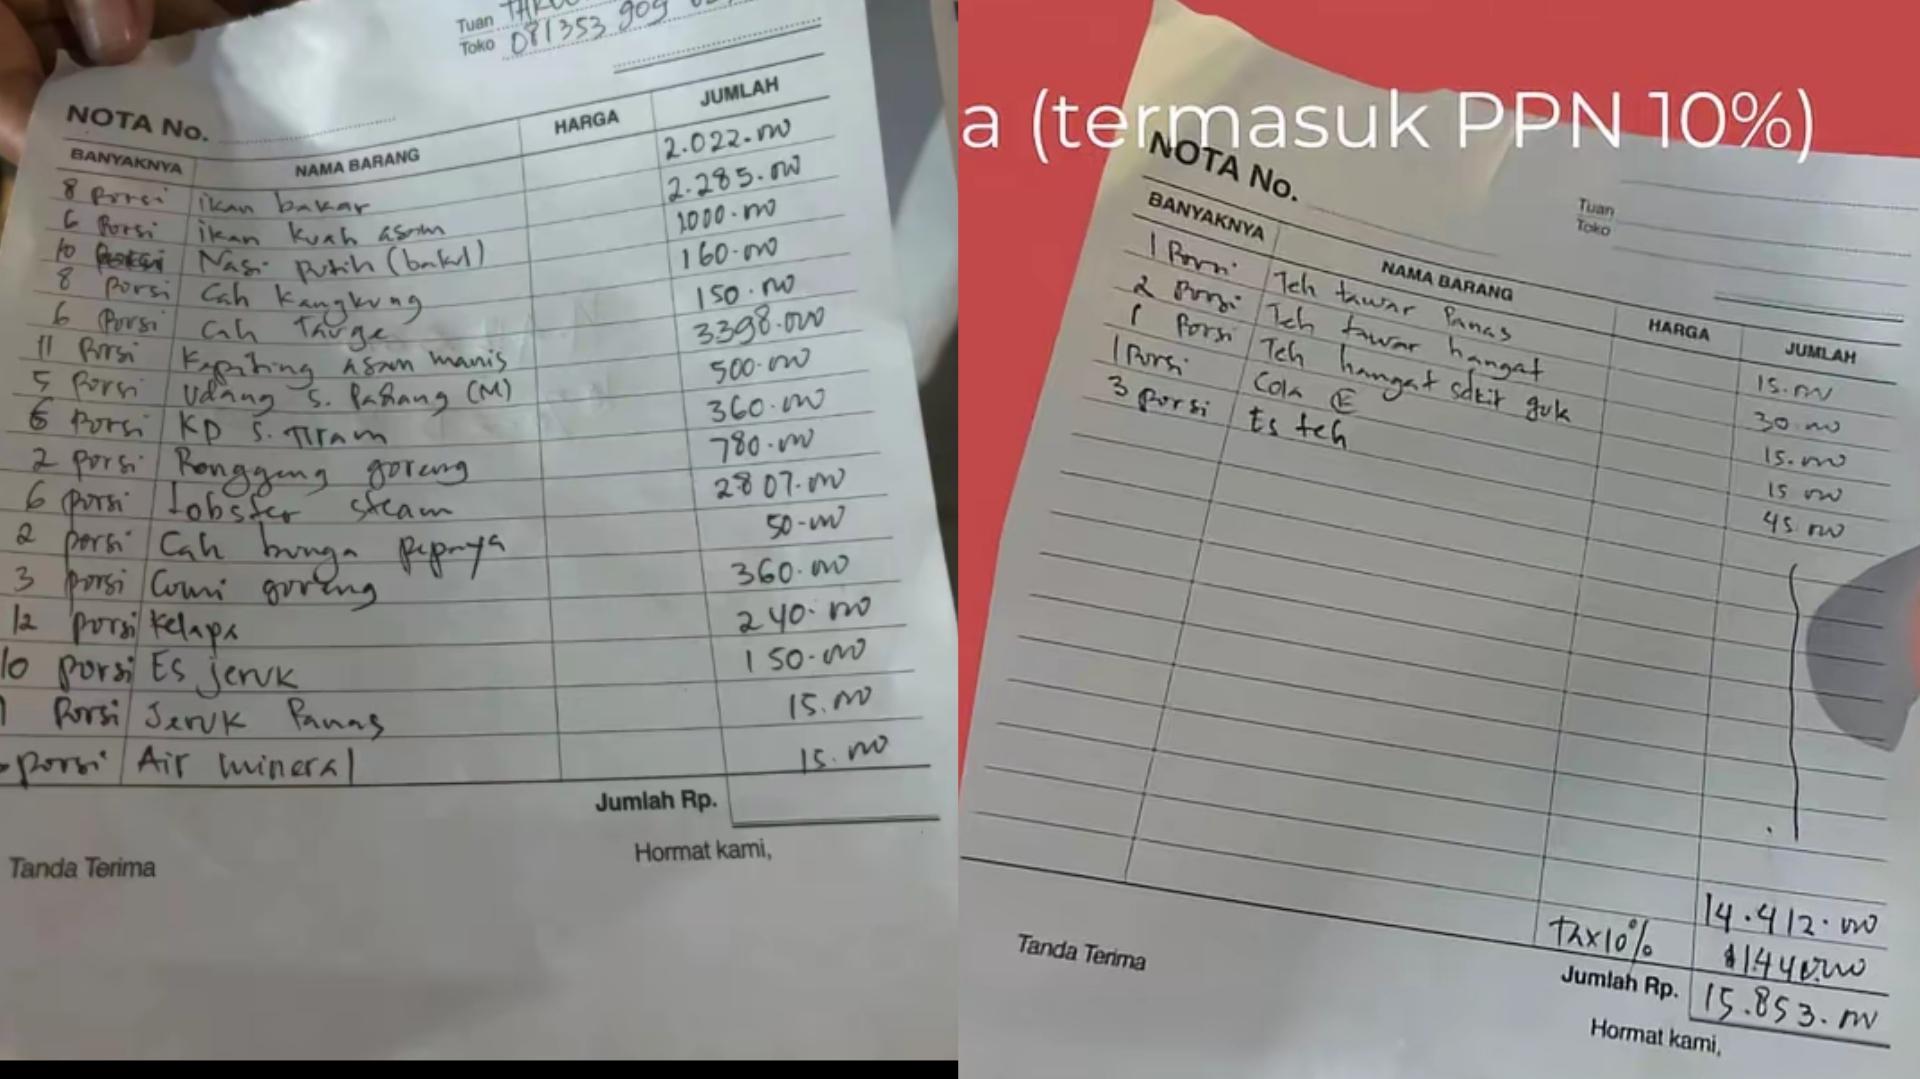 Tuan
Toko 081353 909
NOTA No.
BANYAKNYA NAMA BARANG HARGA JUMLAH
8 Porsi ikan bakar 2.022.000
6 Porsi ikan kuah asam 2.285.000
10 Nasi putih (bakul) 1000.000
8 Porsi Cah kangkung 160.000
6 Porsi Cah Tauge 150.000
11 Porsi Kepiting asam manis 3398.000
5 Porsi Udang s. Padang (M) 500.000
6 Porsi KP S. TIram 360.000
2 porsi Ronggeng goreng 780.000
6 porsi Lobster steam 2807.000
2 porsi Cah bunga pepaya 50.000
3 porsi Cumi goreng 360.000
12 porsi Kelapa 240.000
10 porsi Es jeruk 150.000
1 Porsi Jeruk Panas 15.000
porsi Air mineral 15.000
Jumlah Rp.
Tanda Terima Hormat kami,
a (termasuk PPN 10%)
NOTA No.
Tuan
Toko
BANYAKNYA NAMA BARANG HARGA JUMLAH
1 Porsi Teh tawar Panas 15.000
2 Porsi Teh tawar hangat 30.000
1 Porsi Teh hangat sdkit guk 15.000
1 Porsi Cola E 15 000
3 porsi Es teh 45.000
14.412.000
x10%
Jumlah Rp. 15.853.000
Tanda Terima Hormat kami,